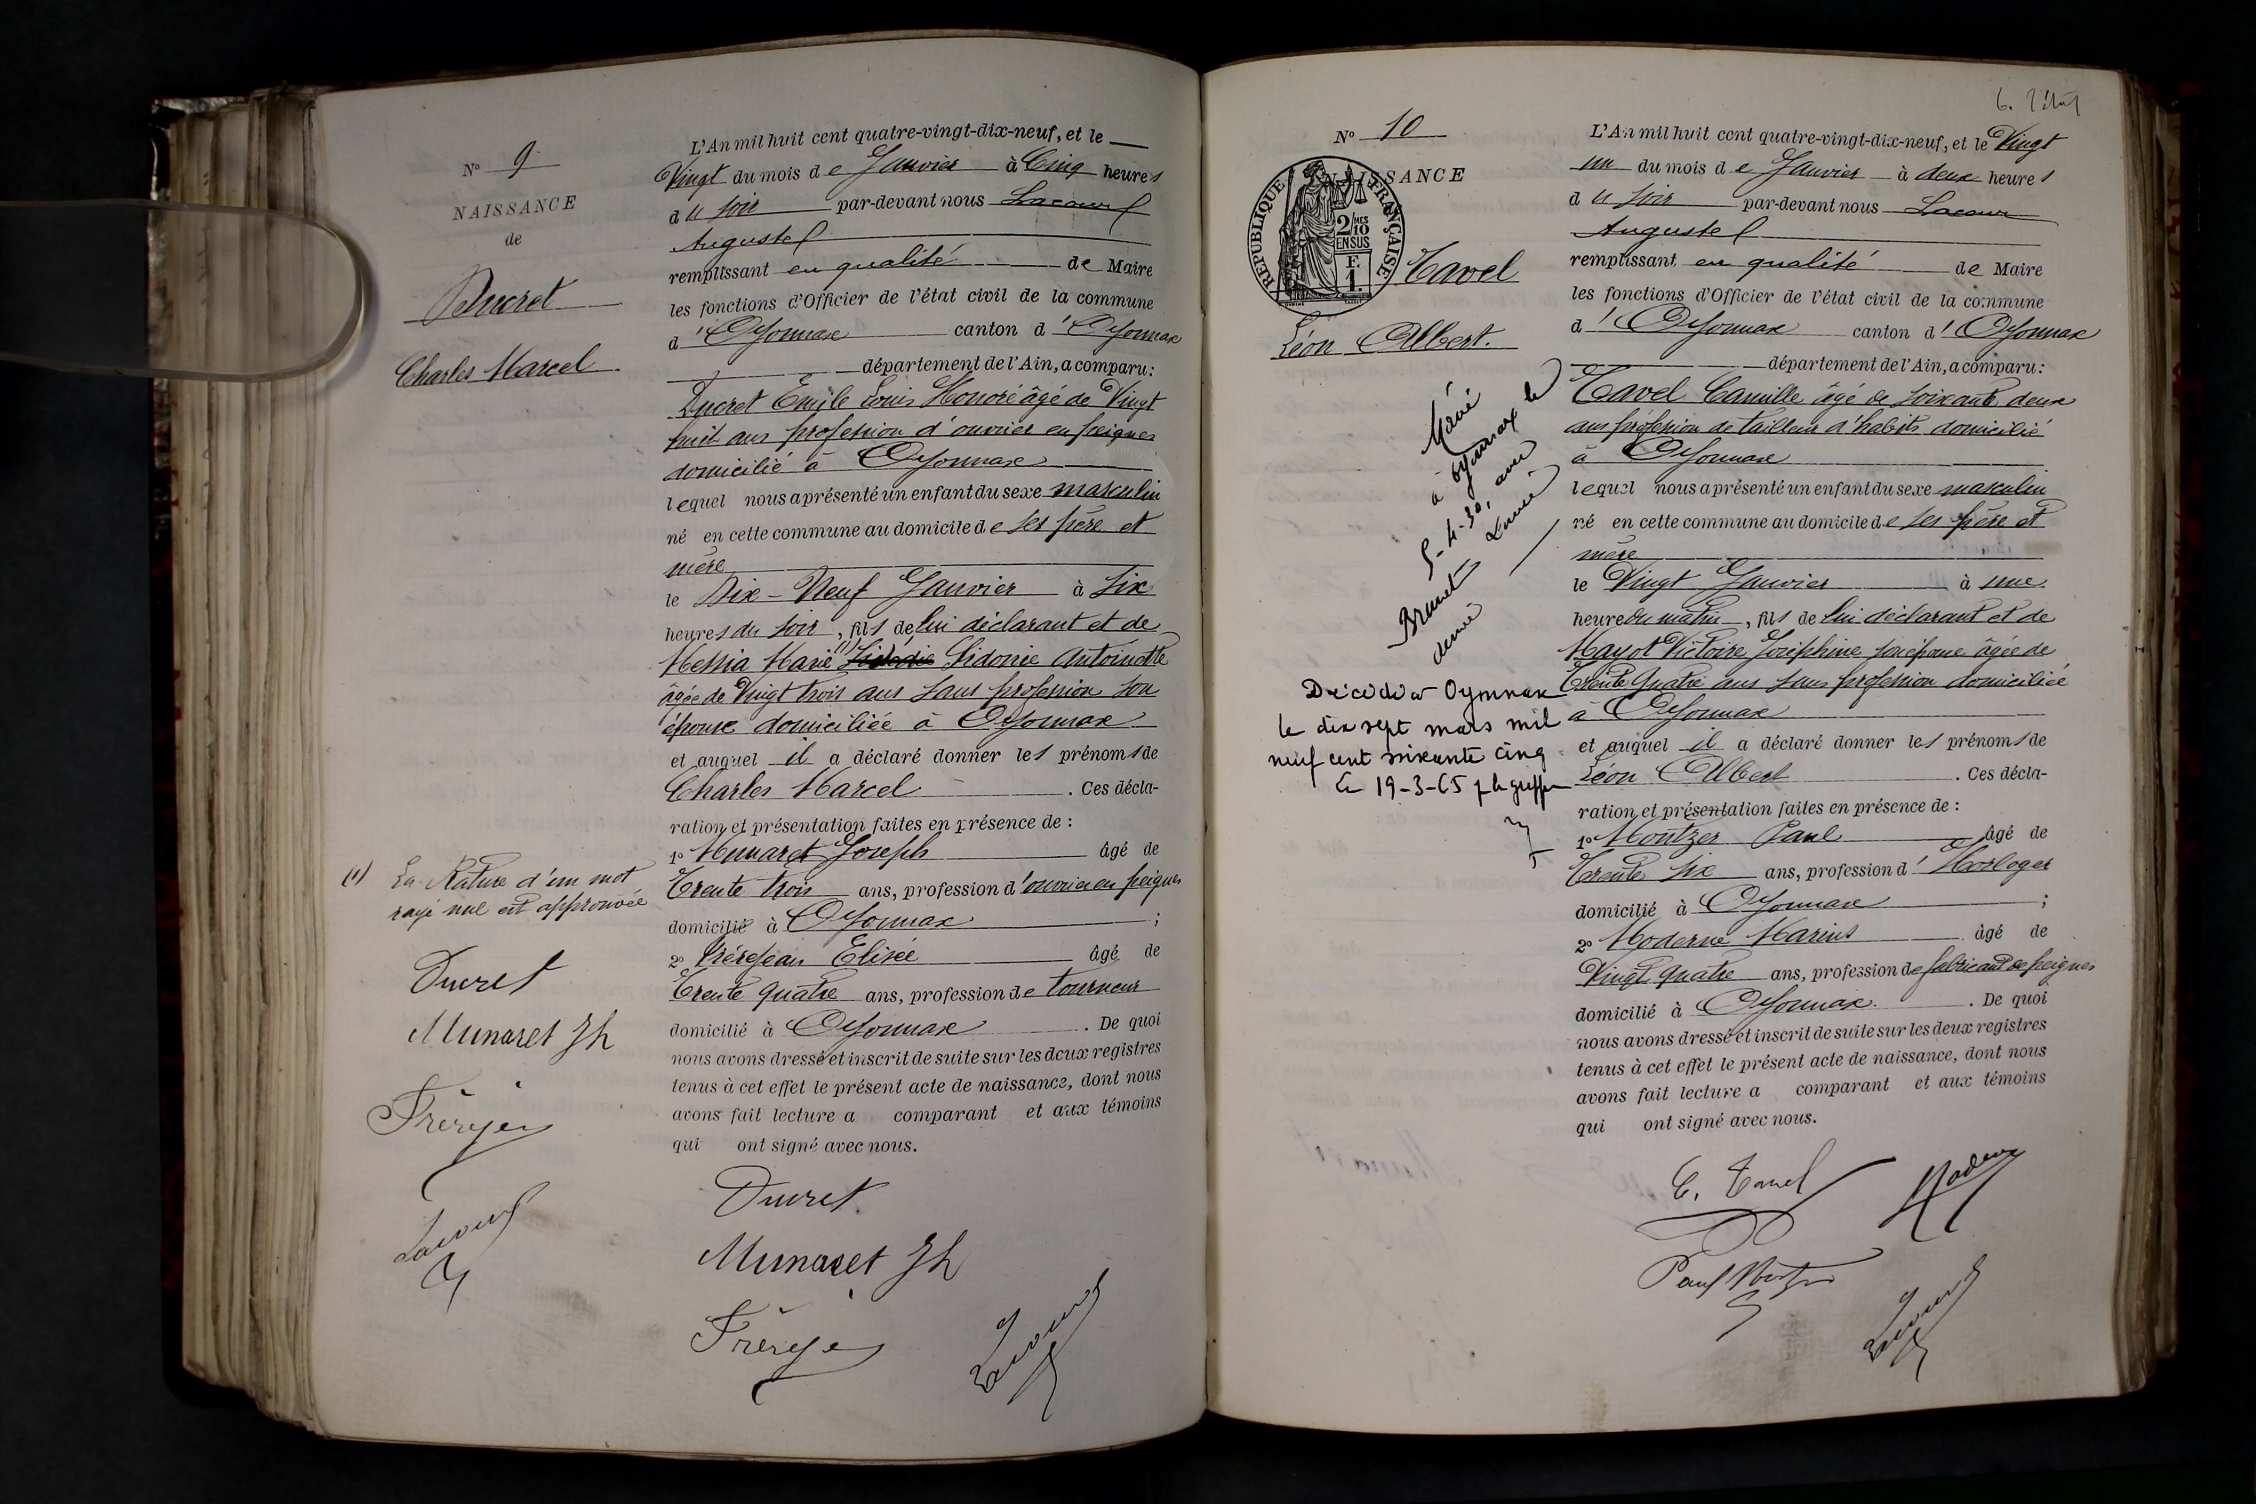 N° 9
NAISSANCE
de
Ducret
Charles Marcel
L'An mil huit cent quatre-vingt-dix-neuf, et le
Vingt du mois de Janvier à Cinq heures
du soir par-devant nous Lacour
Auguste
remplissant en qualité de Maire
les fonctions d'Officier de l'état civil de la commune
d'Oyonnax canton d'Oyonnax
département de l'Ain, a comparu:
Ducret Emile Louis Honoré âgé de Vingt
huit ans profession d'ouvrier en peignes
domicilié à Oyonnax
lequel nous a présenté un enfant du sexe masculin
né en cette commune au domicile de ses père et
mère
le Dix-Neuf Janvier à Six
heures du soir, fils de lui déclarant et de
Messia Marie (1) Sidonie Antoinette
âgée de Vingt trois ans sans profession son
épouse domiciliée à Oyonnax
et auquel il a déclaré donner les prénoms de
Charles Marcel. Ces décla-
ration et présentation faites en présence de :
1° Munaret Joseph âgé de
Trente trois ans, profession d'ouvrier en peignes
domicilié à Oyonnax ;
2° Frérejean Elisée âgé de
Trente quatre ans, profession de tourneur
domicilié à Oyonnax. De quoi
nous avons dressé et inscrit de suite sur les deux registres
tenus à cet effet le présent acte de naissance, dont nous
avons fait lecture a comparant et aux témoins
qui ont signé avec nous.
(1) La Rature d'un mot
rayé nul est approuvée
Ducret
Munaret Jh
Frérejean
Lacour
Ducret
Munaret Jh
Frérejean
Lacour
N° 10
NAISSANCE
REPUBLIQUE FRANÇAISE
2/10 MES
EN SUS
F.
1.
Tavel
Léon Albert.
Marié
à Oyonnax le
5-4-30, avec
Brunet Louise
Décédé à Oyonnax
le dix sept mars mil
neuf cent soixante cinq
Le 19-3-65 p le greffier
L'An mil huit cent quatre-vingt-dix-neuf, et le Vingt
un du mois de Janvier à deux heures
du soir par-devant nous Lacour
Auguste
remplissant en qualité de Maire
les fonctions d'Officier de l'état civil de la commune
d'Oyonnax canton d'Oyonnax
département de l'Ain, a comparu:
Tavel Camille âgé de soixante deux
ans profession de tailleur d'habits domicilié
à Oyonnax
lequel nous a présenté un enfant du sexe masculin
né en cette commune au domicile de ses père et
mère
le Vingt Janvier à une
heure du matin, fils de lui déclarant et de
Mayot Victoire Joséphine son épouse âgée de
Trente Quatre ans sans profession domiciliée
à Oyonnax
et auquel il a déclaré donner les prénoms de
Léon Albert. Ces décla-
ration et présentation faites en présence de :
1° Montzer Paul âgé de
Trente six ans, profession d'Horloger
domicilié à Oyonnax ;
2° Moderne Marius âgé de
Vingt quatre ans, profession de fabricant de peignes
domicilié à Oyonnax. De quoi
nous avons dressé et inscrit de suite sur les deux registres
tenus à cet effet le présent acte de naissance, dont nous
avons fait lecture a comparant et aux témoins
qui ont signé avec nous.
C. Tavel
Moderne
Paul
Lacour